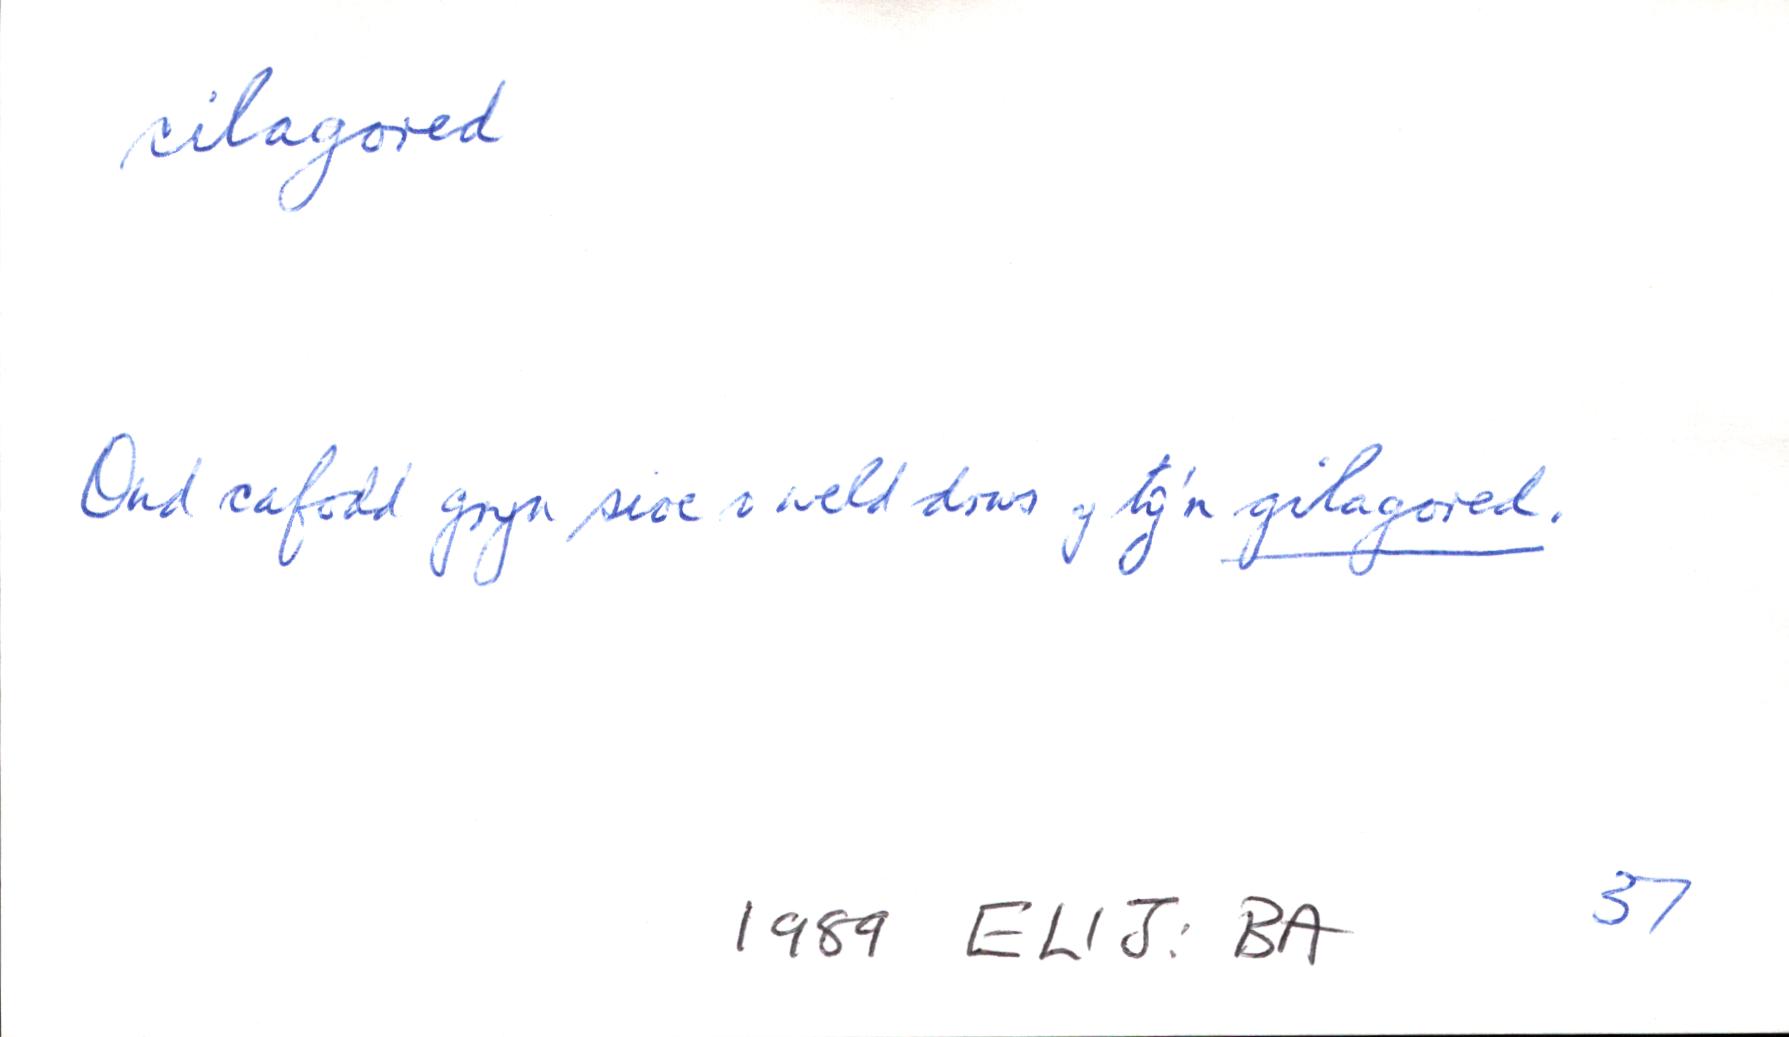 cilagored
Ond cafodd gryn sioc o weld drws y tŷ'n gilagored.
1989 ELIJ: BA 37